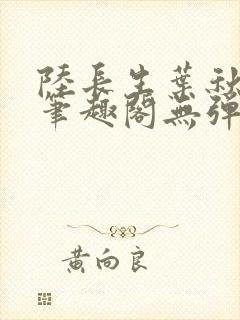 陸長生葉秋
筆趣閣無彈
黃向良